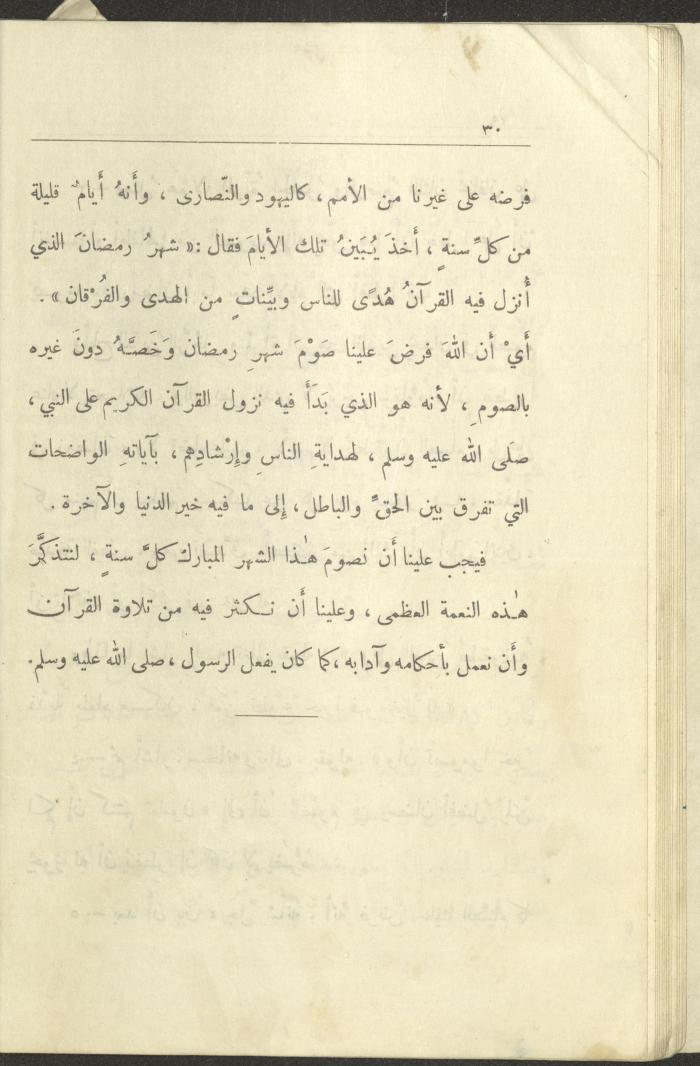 ٣٠
فرضه على غيرنا من الأمم ، كاليهود والنّصارى ، وأَنهُ أَيامٌ قليلة
من كلِّ سنةٍ ، أَخذَ يُبَينُ تلك الأيامَ فقال :« شهرُ رمضانَ الذي
أُنزل فيه القرآنُ هُدًى للناس وبيِّناتٍ من الهدى والفُرْقان » .
أَيْ أَن اللهَ فرضَ علينا صَوْمَ شهرِ رمضان وَخَصَّهُ دونَ غيره
بالصومِ ، لأنه هو الذي بَدَأَ فيه نزول القرآن الكريم على النبي ،
صلَى الله عليه وسلم ، لهدايةِ الناسِ وإِرْشادِهم ، بآياتهِ الواضحات
التي تفرق بين الحقِّ والباطل ، إِلى ما فيه خير الدنيا والآخرة .
فيجب علينا أَن نصومَ هٰذا الشهر المبارك كلَّ سنةٍ ، لنتذكَّرَ
هٰذه النعمة العظمى ، وعلينا أَن نكثر فيه من تلاوة القرآن
وأَن نعمل بأحكامه وآدابه ، كما كان يفعل الرسول ، صلى الله عليه وسلم .